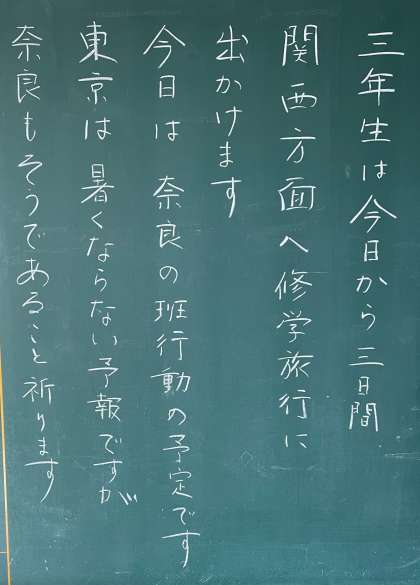 三年生は今日から三日間
関西方面へ修学旅行に
出かけます
今日は奈良の班行動の予定です
東京は暑くならない予報ですが
奈良もそうであること祈ります